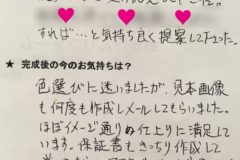 すれば…と気持ち良く提案して下さった。
★ 完成後の今のお気持ちは？
色選びに迷いましたが、見本画像
も何度も作成しメールしてもらいました。
ほぼイメージ通りの仕上りに満足して
います。保証書もきっちり作成して